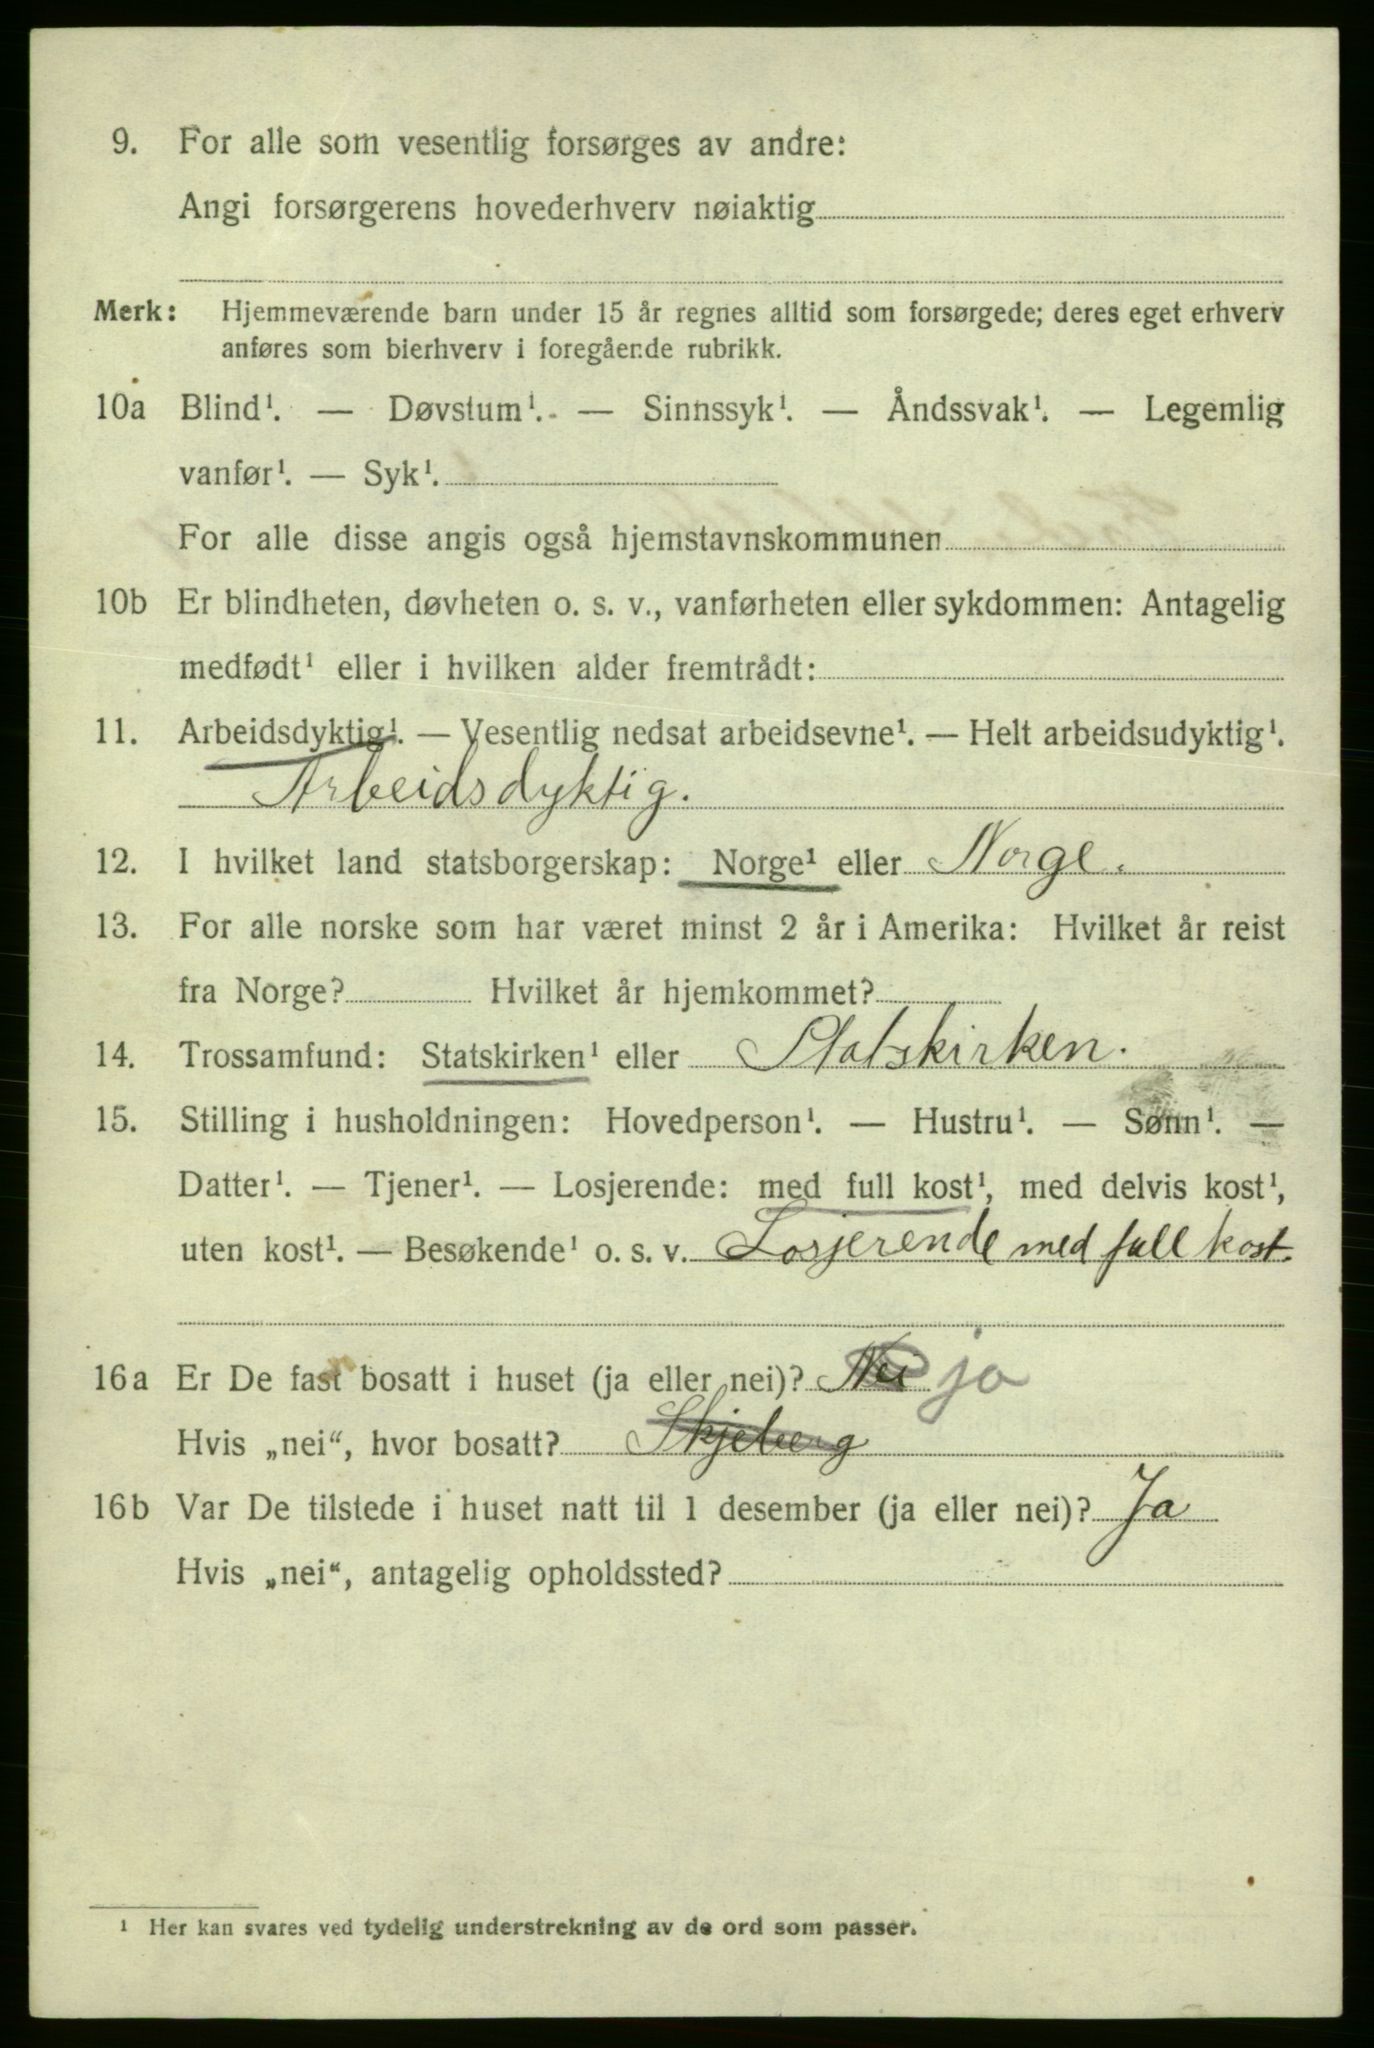 9. For alle som vesentlig forsørges av andre:
Angi forsørgerens hovederhverv nøiaktig
Merk: Hjemmeværende barn under 15 år regnes alltid som forsørgede; deres eget erhverv
anføres som bierhverv i foregående rubrikk.
10a Blind¹. — Døvstum¹. — Sinnssyk¹. — Åndssvak¹. — Legemlig
vanfør¹. — Syk¹.
For alle disse angis også hjemstavnskommunen
10b Er blindheten, døvheten o. s. v., vanførheten eller sykdommen: Antagelig
medfødt¹ eller i hvilken alder fremtrådt:
11. Arbeidsdyktig¹. — Vesentlig nedsat arbeidsevne¹. — Helt arbeidsudyktig¹.
Arbeidsdyktig.
12. I hvilket land statsborgerskap: Norge¹ eller Norge.
13. For alle norske som har været minst 2 år i Amerika: Hvilket år reist
fra Norge? Hvilket år hjemkommet?
14. Trossamfund: Statskirken¹ eller Statskirken.
15. Stilling i husholdningen: Hovedperson¹. — Hustru¹. — Sønn¹. —
Datter¹. — Tjener¹. — Losjerende: med full kost¹, med delvis kost¹,
uten kost¹. — Besøkende¹ o. s. v. Losjerende med full kost.
16a Er De fast bosatt i huset (ja eller nei)? Nei ja
Hvis „nei“, hvor bosatt? Skjeberg
16b Var De tilstede i huset natt til 1 desember (ja eller nei)? Ja
Hvis „nei“, antagelig opholdssted?
¹ Her kan svares ved tydelig understrekning av de ord som passer.